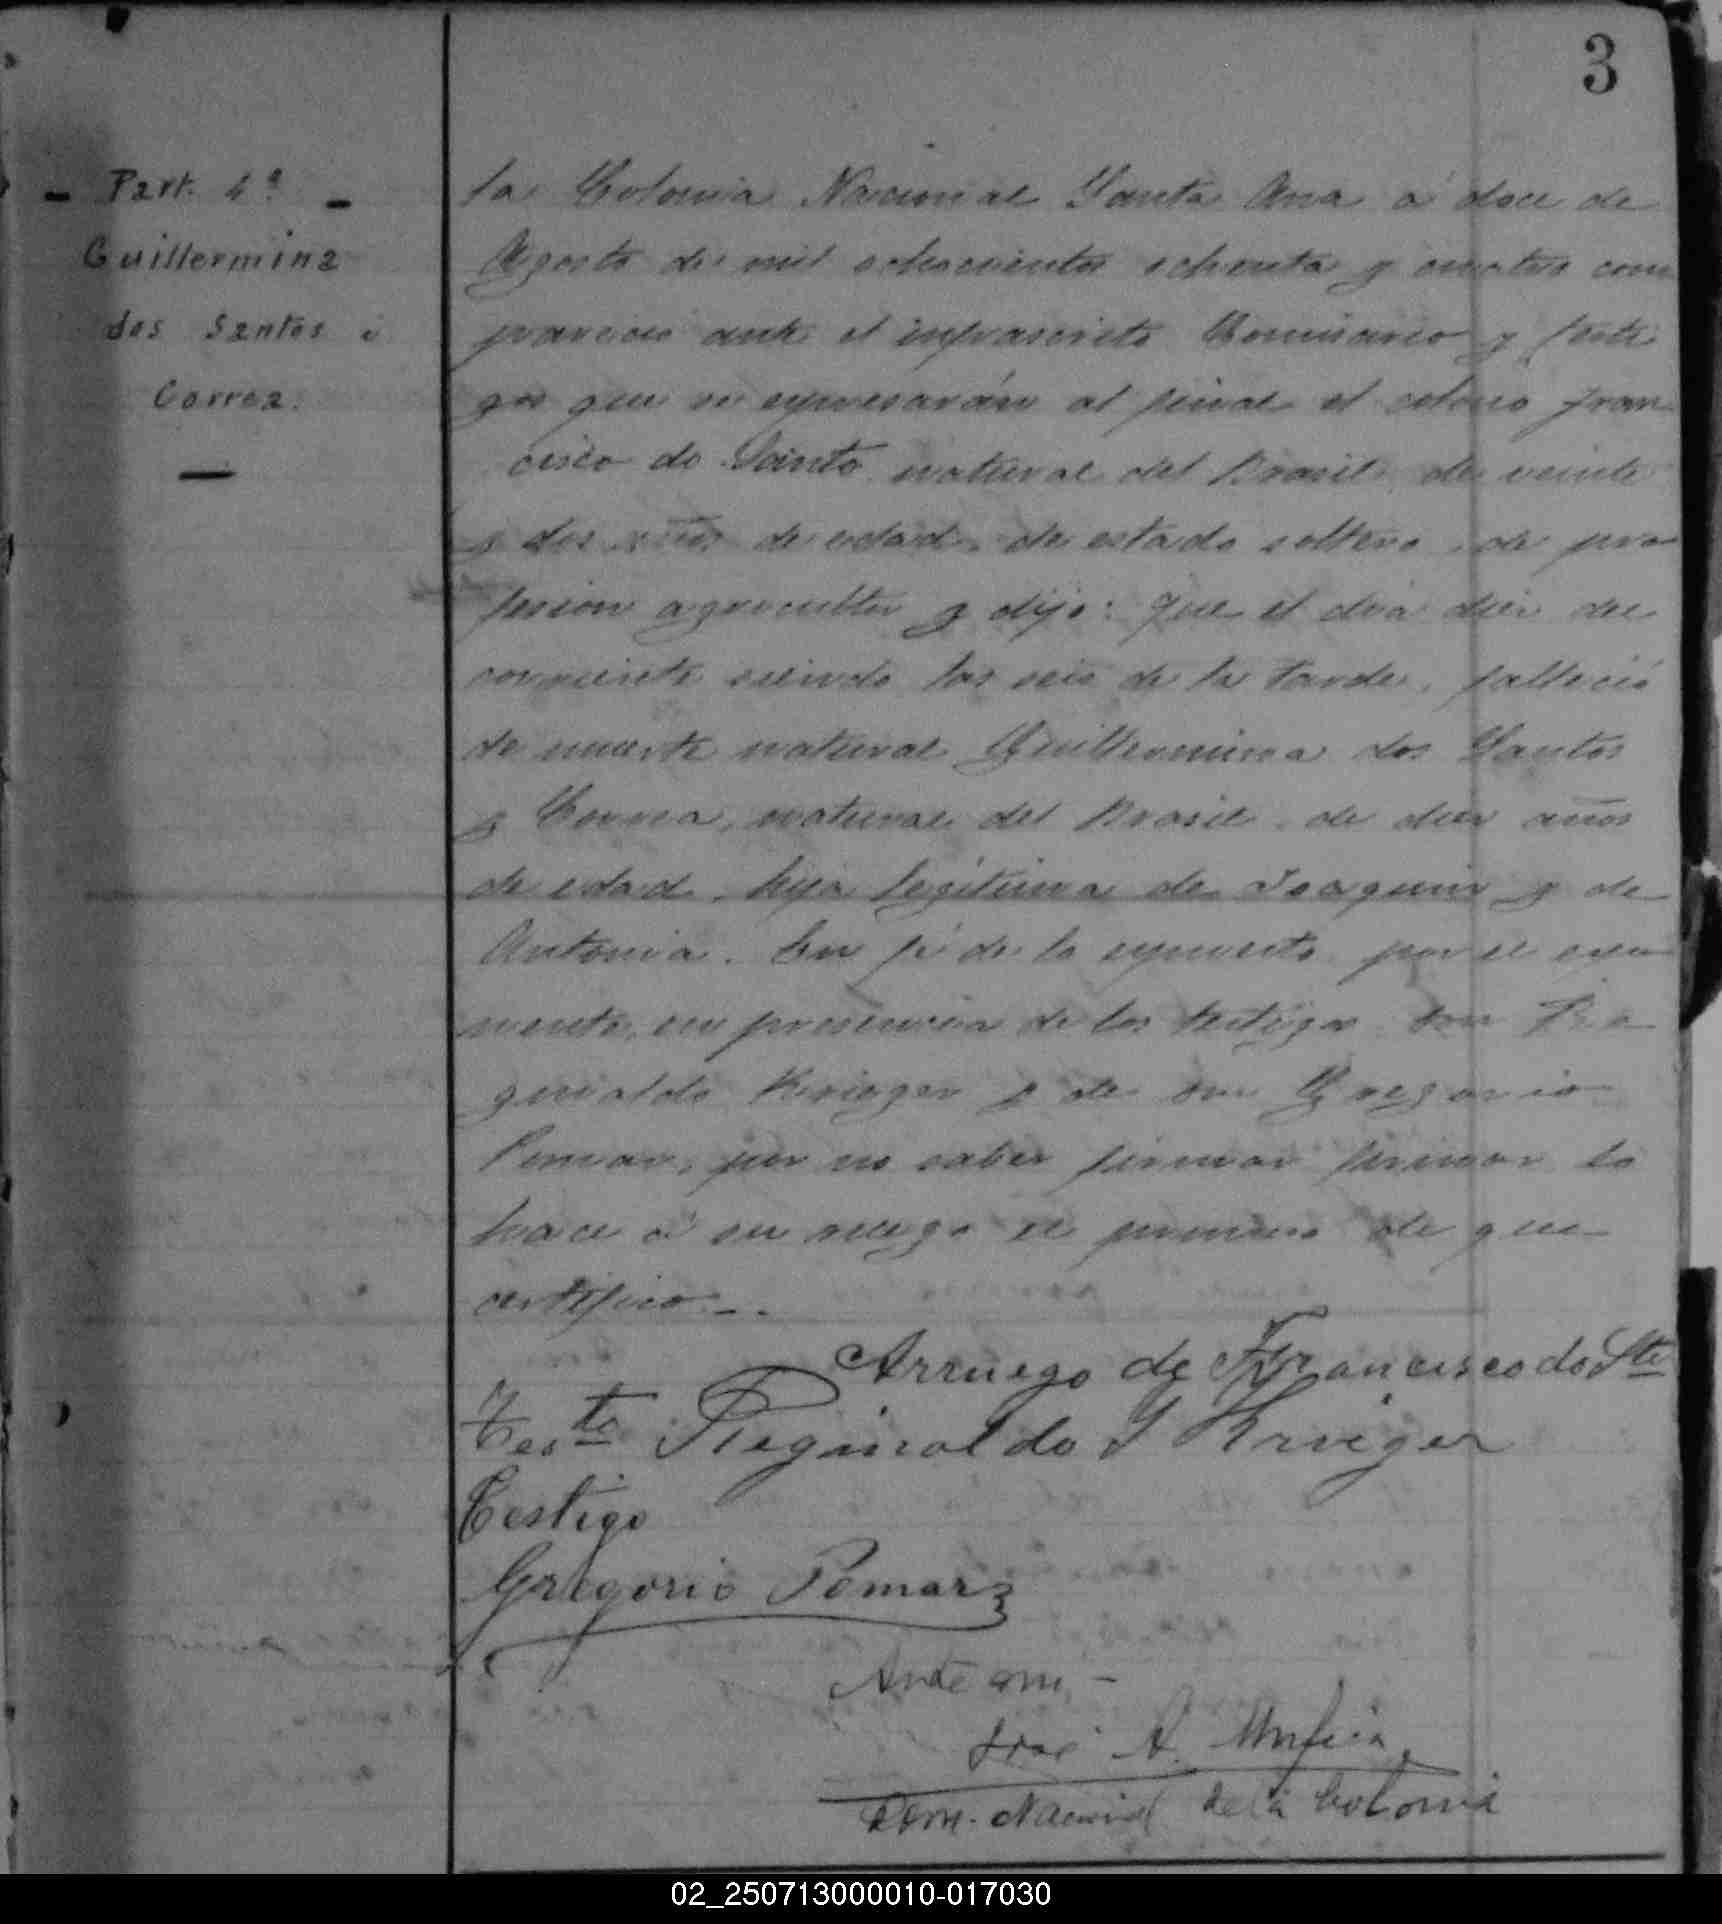 3
- Part. 4ª -
Guillermina
dos Santos i
Correa.
la Colonia Nacional Santa Ana a doce de
Agosto de mil ochocientos ochenta y cuatro com
pareció ante el infrascrito Comisario y testi
gos que se espresarán al final el colono Fran
cisco do Santo natural del Brasil de veinte
y dos años de edad, de estado soltero, de pro
fesion agricultor y dijo: que el dia diez del
corriente siendo las seis de la tarde, falleció
de muerte natural Guillermina dos Santos
y Correa, natural del Brasil, de diez años
de edad, hija legítima de Joaquin y de
Antonia. En fé de lo espuesto por el espo
nente, en presencia de los testigos don Re
ginaldo Krieger y de don Gregorio
Pomar, por no saber firmar firmar lo
hace á su ruego el primero de que
certifico.-.
Arruego de Francisco do Sto
Testo Reginaldo J Krieger
Testigo
Gregorio Pomar
Ante mi -
José A.
Com. Nacional de la Colonia
02_250713000010-017030